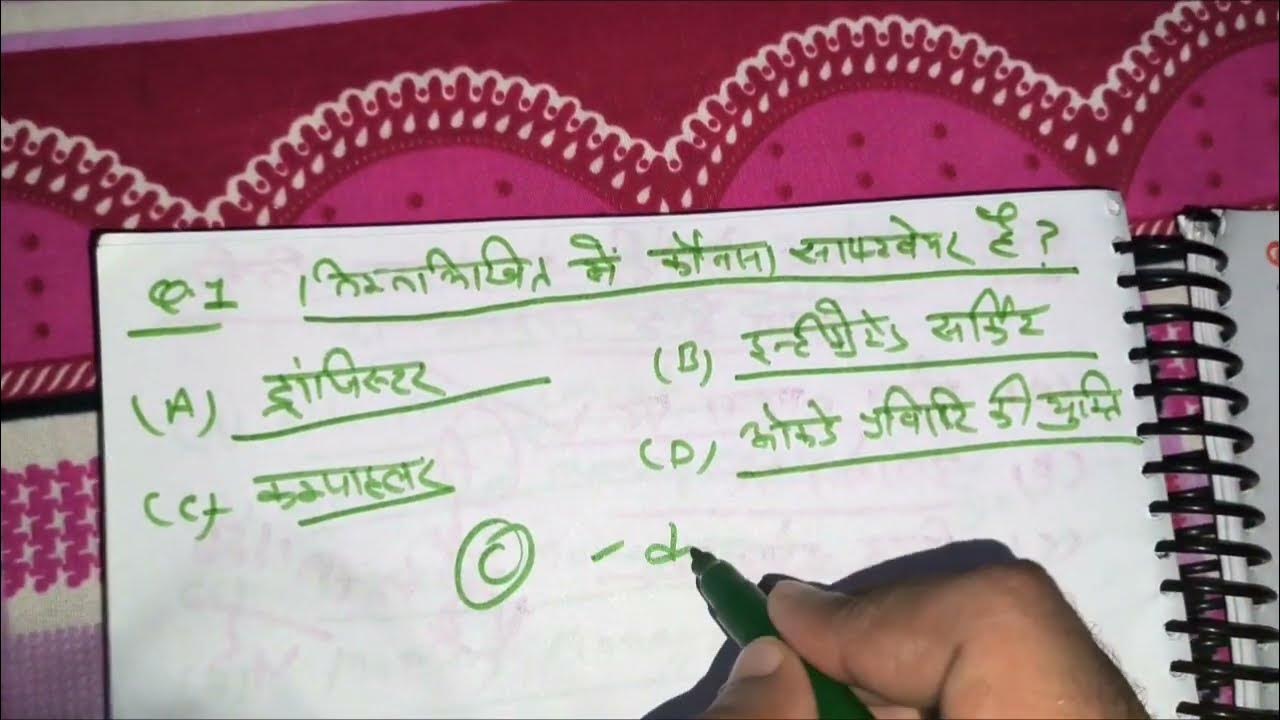 Q.1 निम्नलिखित में कौनसा साफ्टवेयर है?
(A) ट्रांजिस्टर
(B) इन्टीग्रेटेड सर्किट
(C) कम्पाइलर
(D) की युक्ति
(C) -